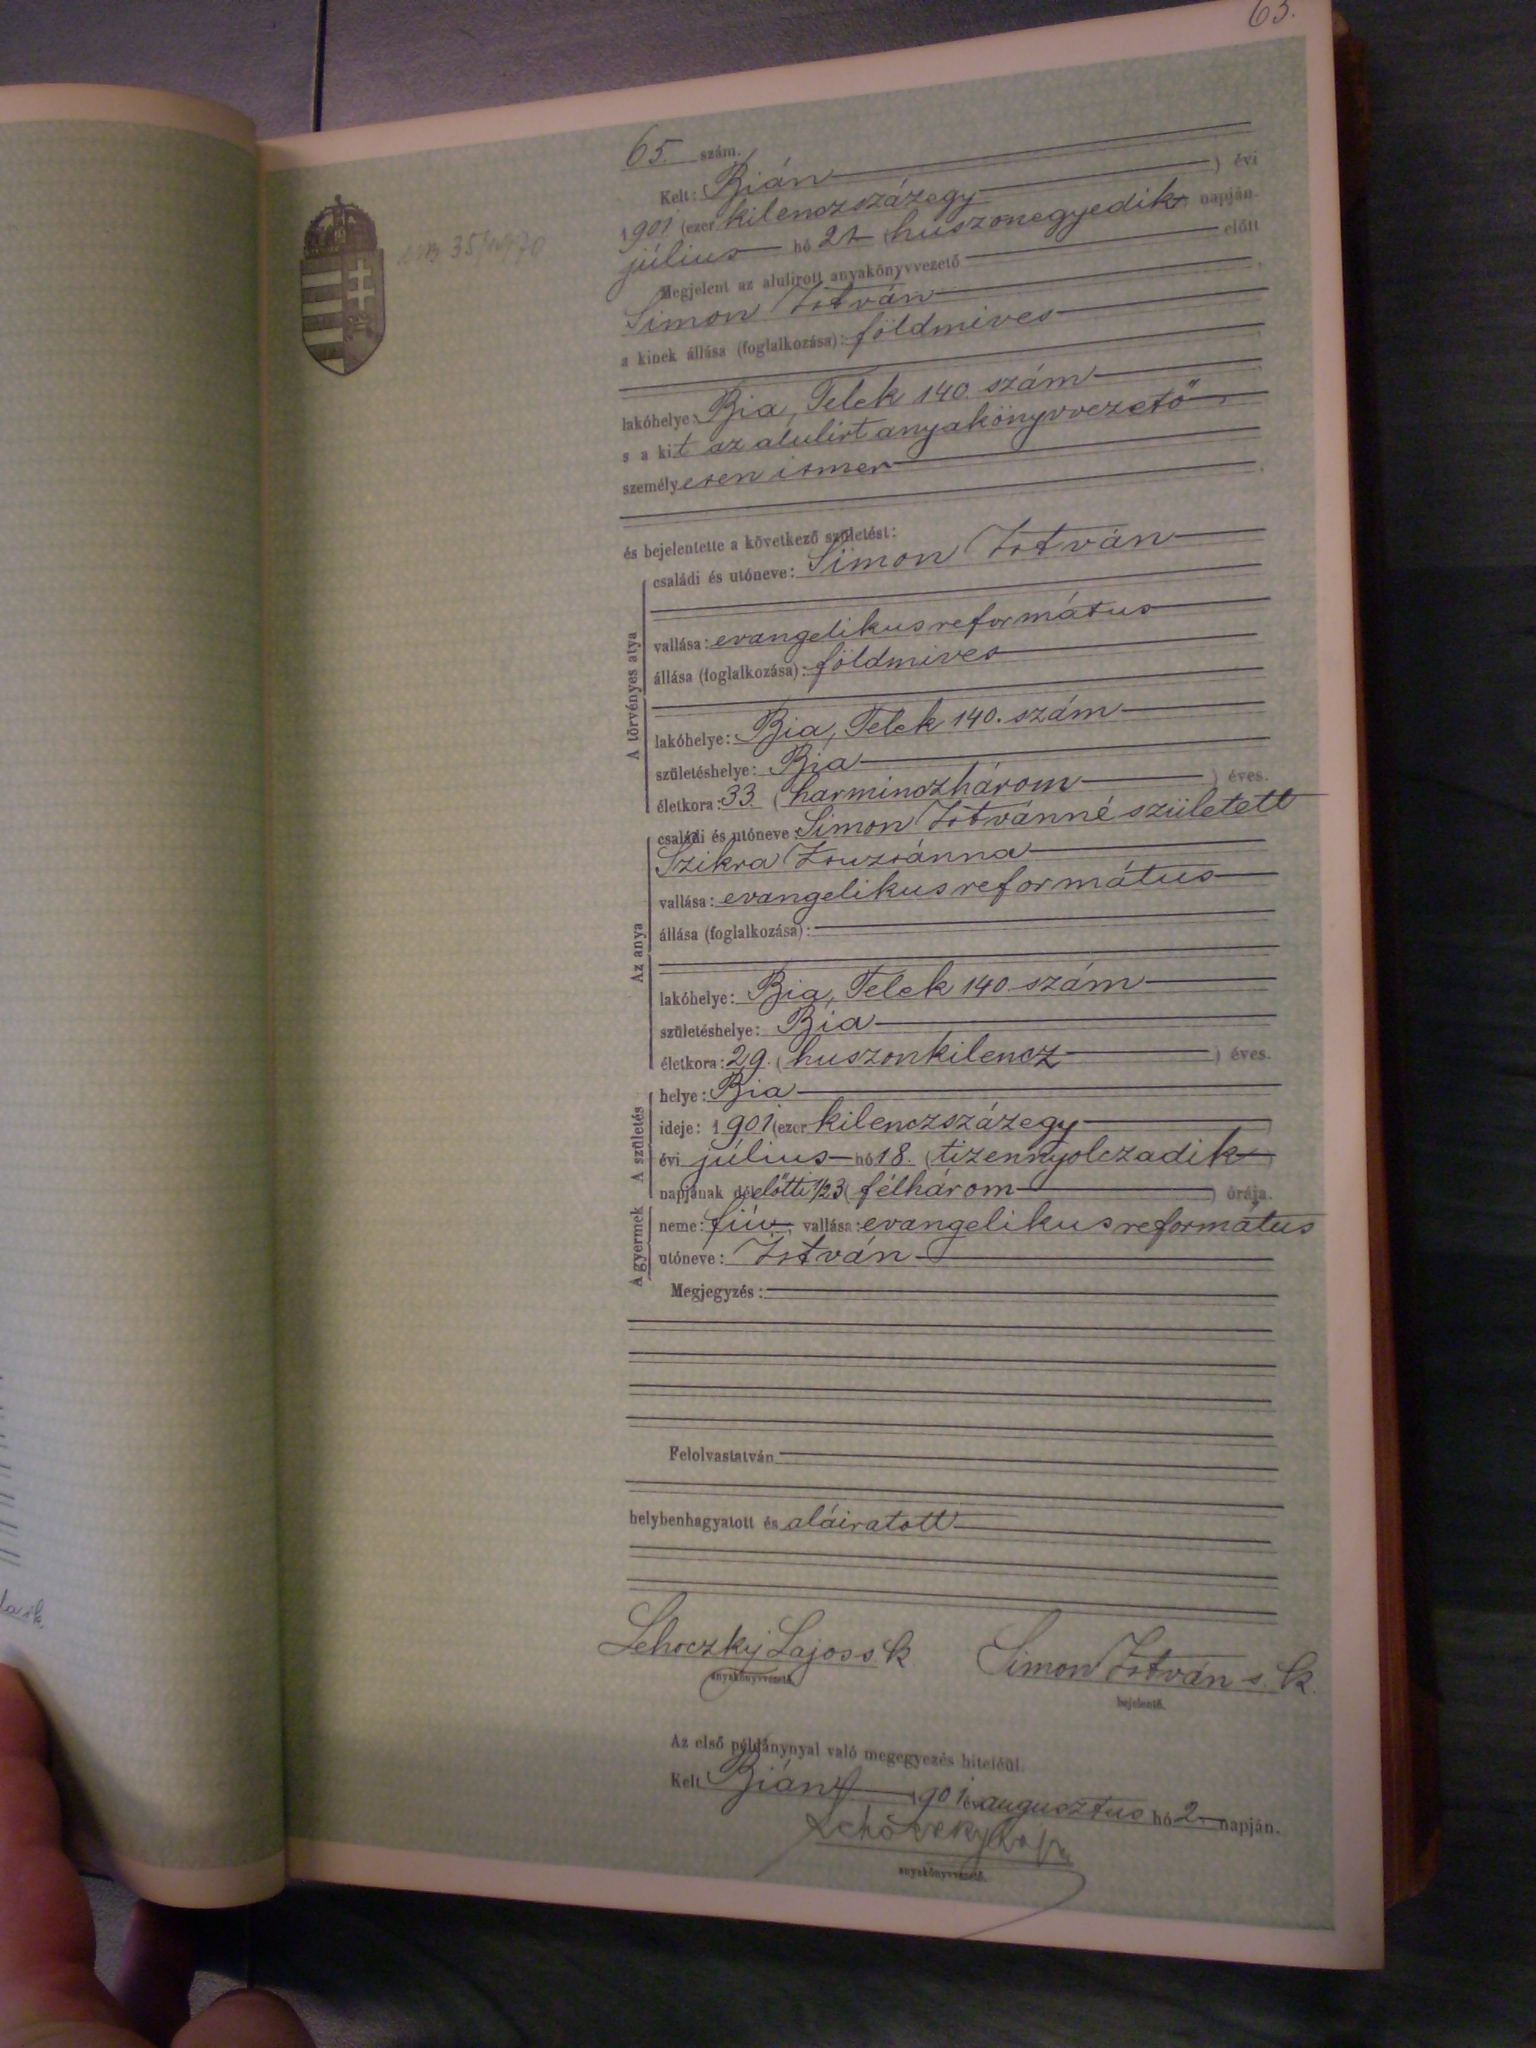 65.
65. szám.
Kelt: Bián ) évi
1901 (ezer kilenczszázegy
július hó 21 (huszonegyedik) napján.
Megjelent az alulirott anyakönyvvezető előtt
Simon István
a kinek állása (foglalkozása): földmives
lakóhelye: Bia, Telek 140. szám
s a kit az alulirt anyakönyvvezető
személyesen ismer
és bejelentette a következő születést:
A törvényes atya
családi és utóneve: Simon István
vallása: evangelikus református
állása (foglalkozása): földmives
lakóhelye: Bia, Telek 140. szám
születéshelye: Bia
életkora: 33. (harminczhárom ) éves.
Az anya
családi és utóneve: Simon Istvánné született
Szikra Zsuzsánna
vallása: evangelikus református
állása (foglalkozása):
lakóhelye: Bia, Telek 140 szám
születéshelye: Bia
életkora: 29. (huszonkilencz ) éves.
A születés
helye: Bia
ideje: 1901 (ezer kilenczszázegy )
évi július hó 18. (tizennyolczadik )
napjának délelőtti 1/23 (félhárom ) órája.
A gyermek
neme: fiú, vallása: evangelikus református
utóneve: István
Megjegyzés:
Felolvastatván
helybenhagyatott és aláiratott
Lehoczky Lajos s k Simon István s. k.
anyakönyvvezető. bejelentő.
Az első példánynyal való megegyezés hiteléül.
Kelt Bián 1901 évi augusztus hó 2. napján.
Lehoczky Lajos
anyakönyvvezető.